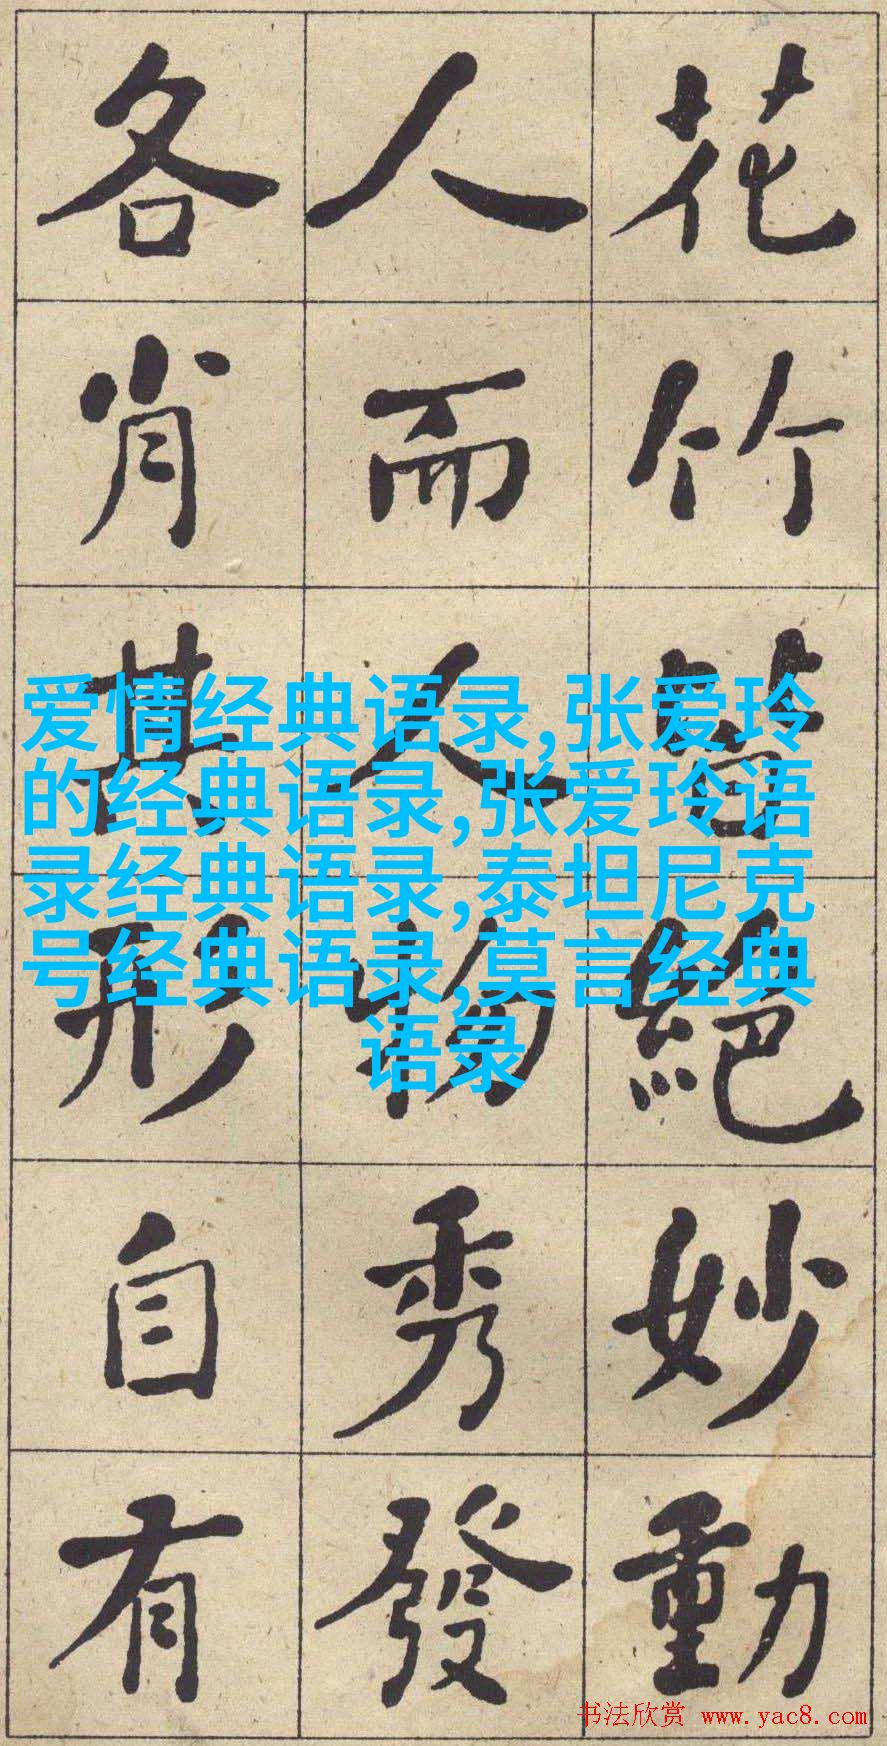 花竹皆絕妙動
人而人物秀發
各肖其形自有
爱情经典语录,张爱玲
的经典语录,张爱玲语
录经典语录,泰坦尼克
号经典语录,莫言经典
语录
书法欣赏 www.yac8.com